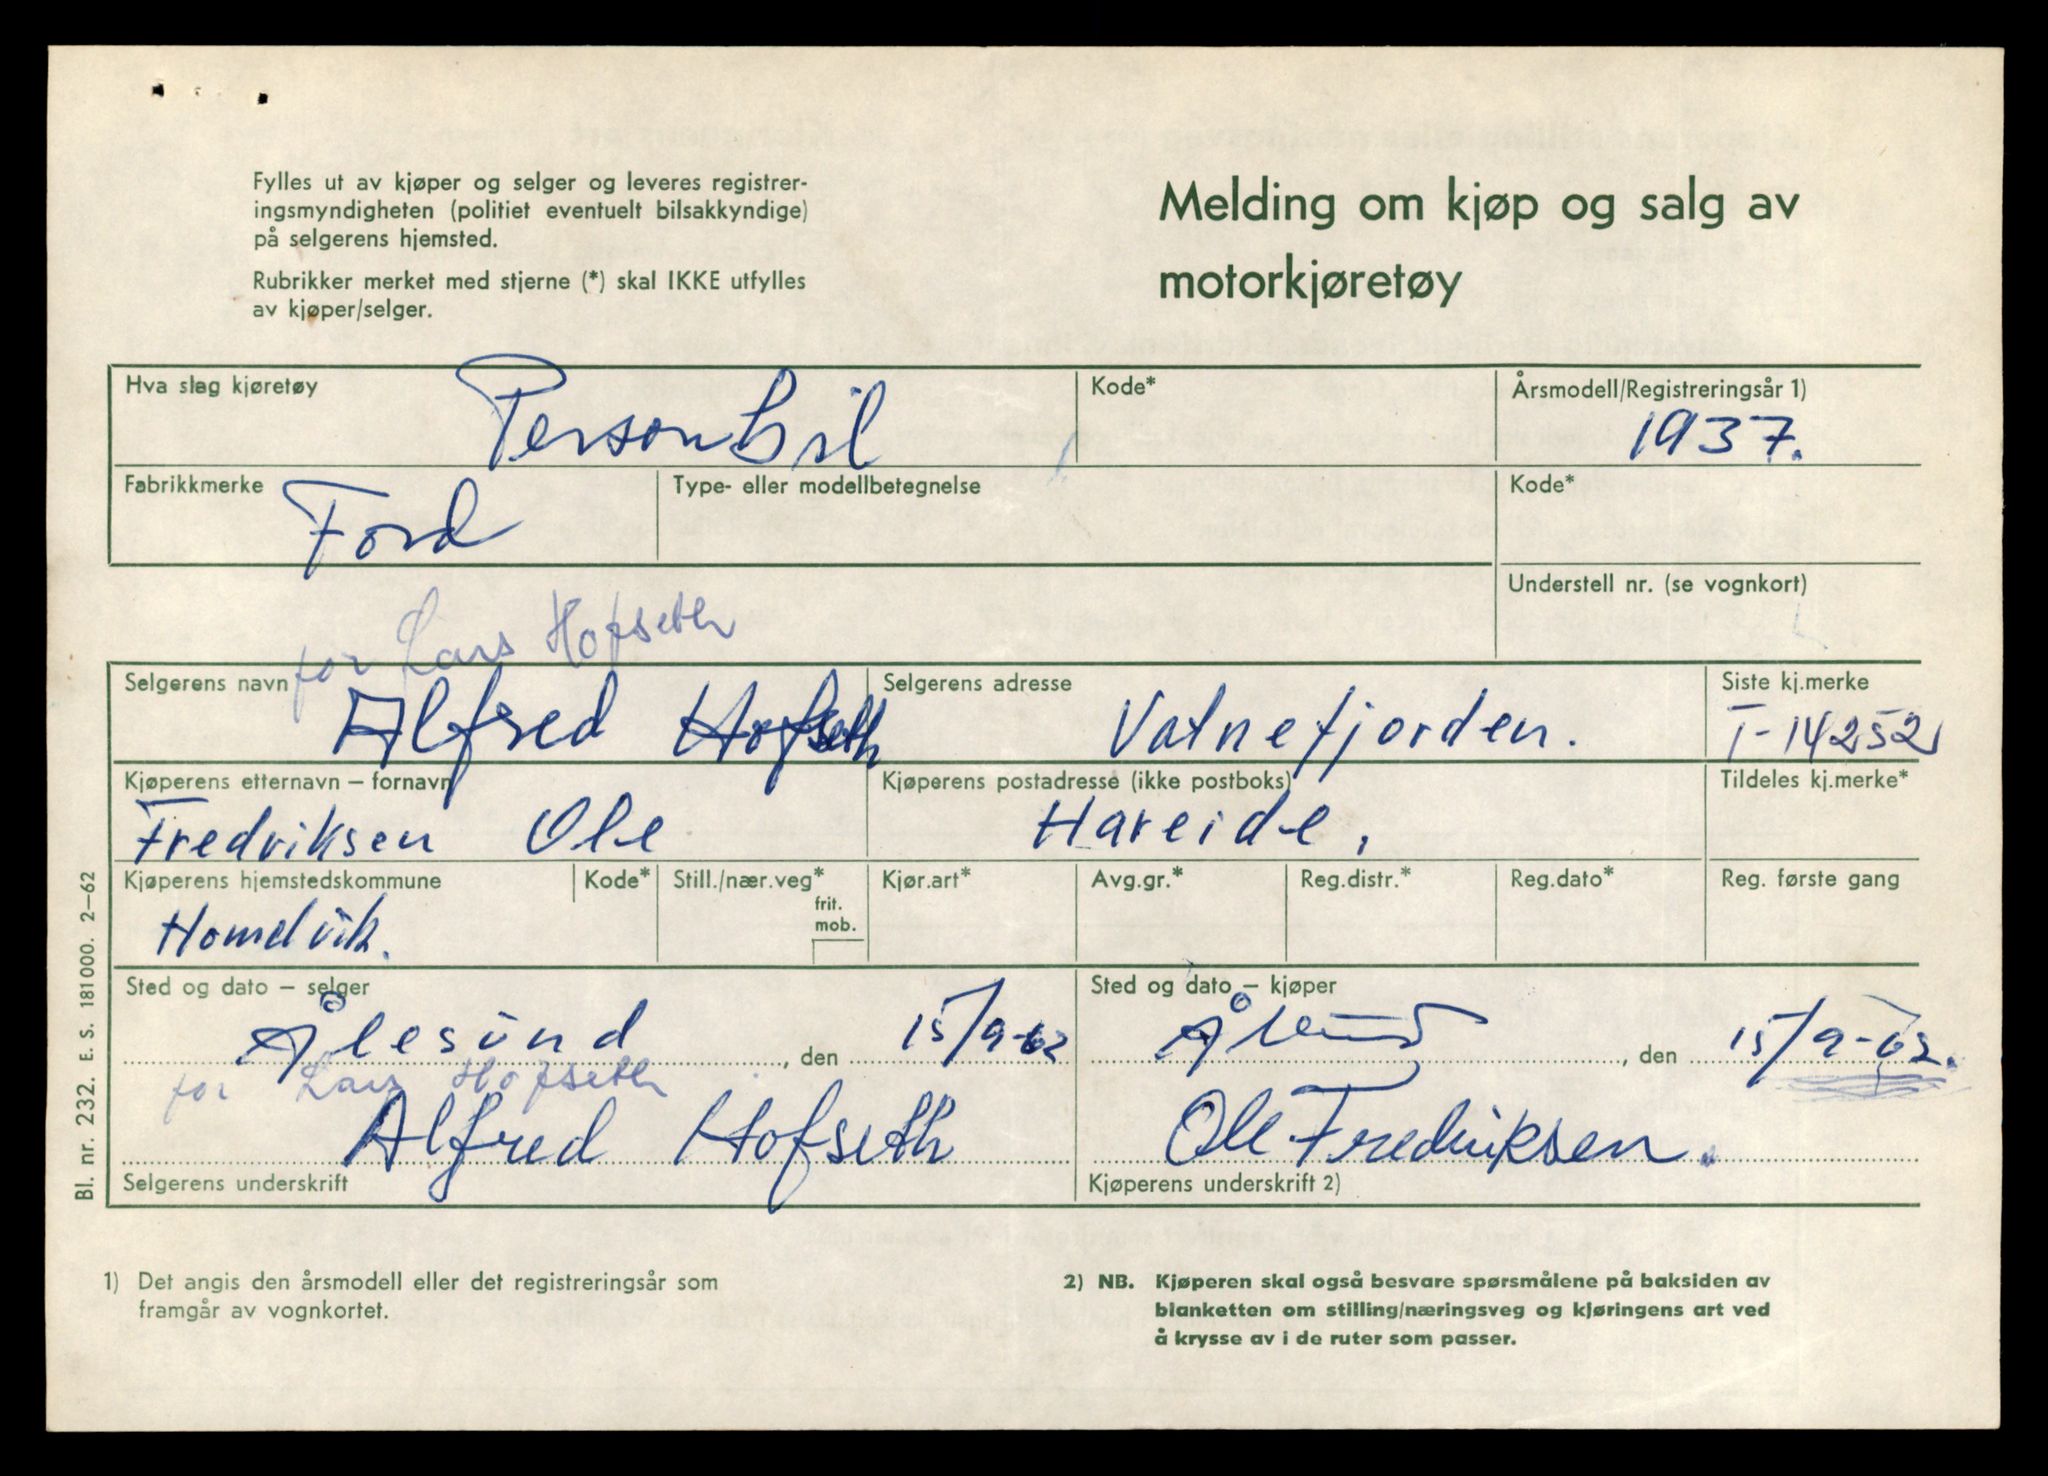 Fylles ut av kjøper og selger og leveres registrer-
ingsmyndigheten (politiet eventuelt bilsakkyndige)
på selgerens hjemsted.
Rubrikker merket med stjerne (*) skal IKKE utfylles
av kjøper/selger.
Melding om kjøp og salg av
motorkjøretøy
Hva slag kjøretøy
Personbil
Kode*
Årsmodell/Registreringsår 1)
1937.
Fabrikkmerke
Ford
Type- eller modellbetegnelse
Kode*
Understell nr. (se vognkort)
for Lars Hofseth
Selgerens navn
Alfred Hofseth
Selgerens adresse
Vatnefjorden.
Siste kj.merke
T-14252
Kjøperens etternavn – fornavn
Fredriksen Ole
Kjøperens postadresse (ikke postboks)
Hareide,
Tildeles kj.merke*
Kjøperens hjemstedskommune
Homelvik.
Kode*
Still./nær.veg*
frit.
mob.
Kjør.art*
Avg.gr.*
Reg.distr.*
Reg.dato*
Reg. første gang
Sted og dato – selger
Ålesund, den 15/9-62
for Lars Hofseth
Alfred Hofseth
Selgerens underskrift
Sted og dato – kjøper
Ålesund, den 15/9-62.
Ole Fredriksen.
Kjøperens underskrift 2)
Bl. nr. 232. E. S. 181000. 2–62
1) Det angis den årsmodell eller det registreringsår som
framgår av vognkortet.
2) NB. Kjøperen skal også besvare spørsmålene på baksiden av
blanketten om stilling/næringsveg og kjøringens art ved
å krysse av i de ruter som passer.